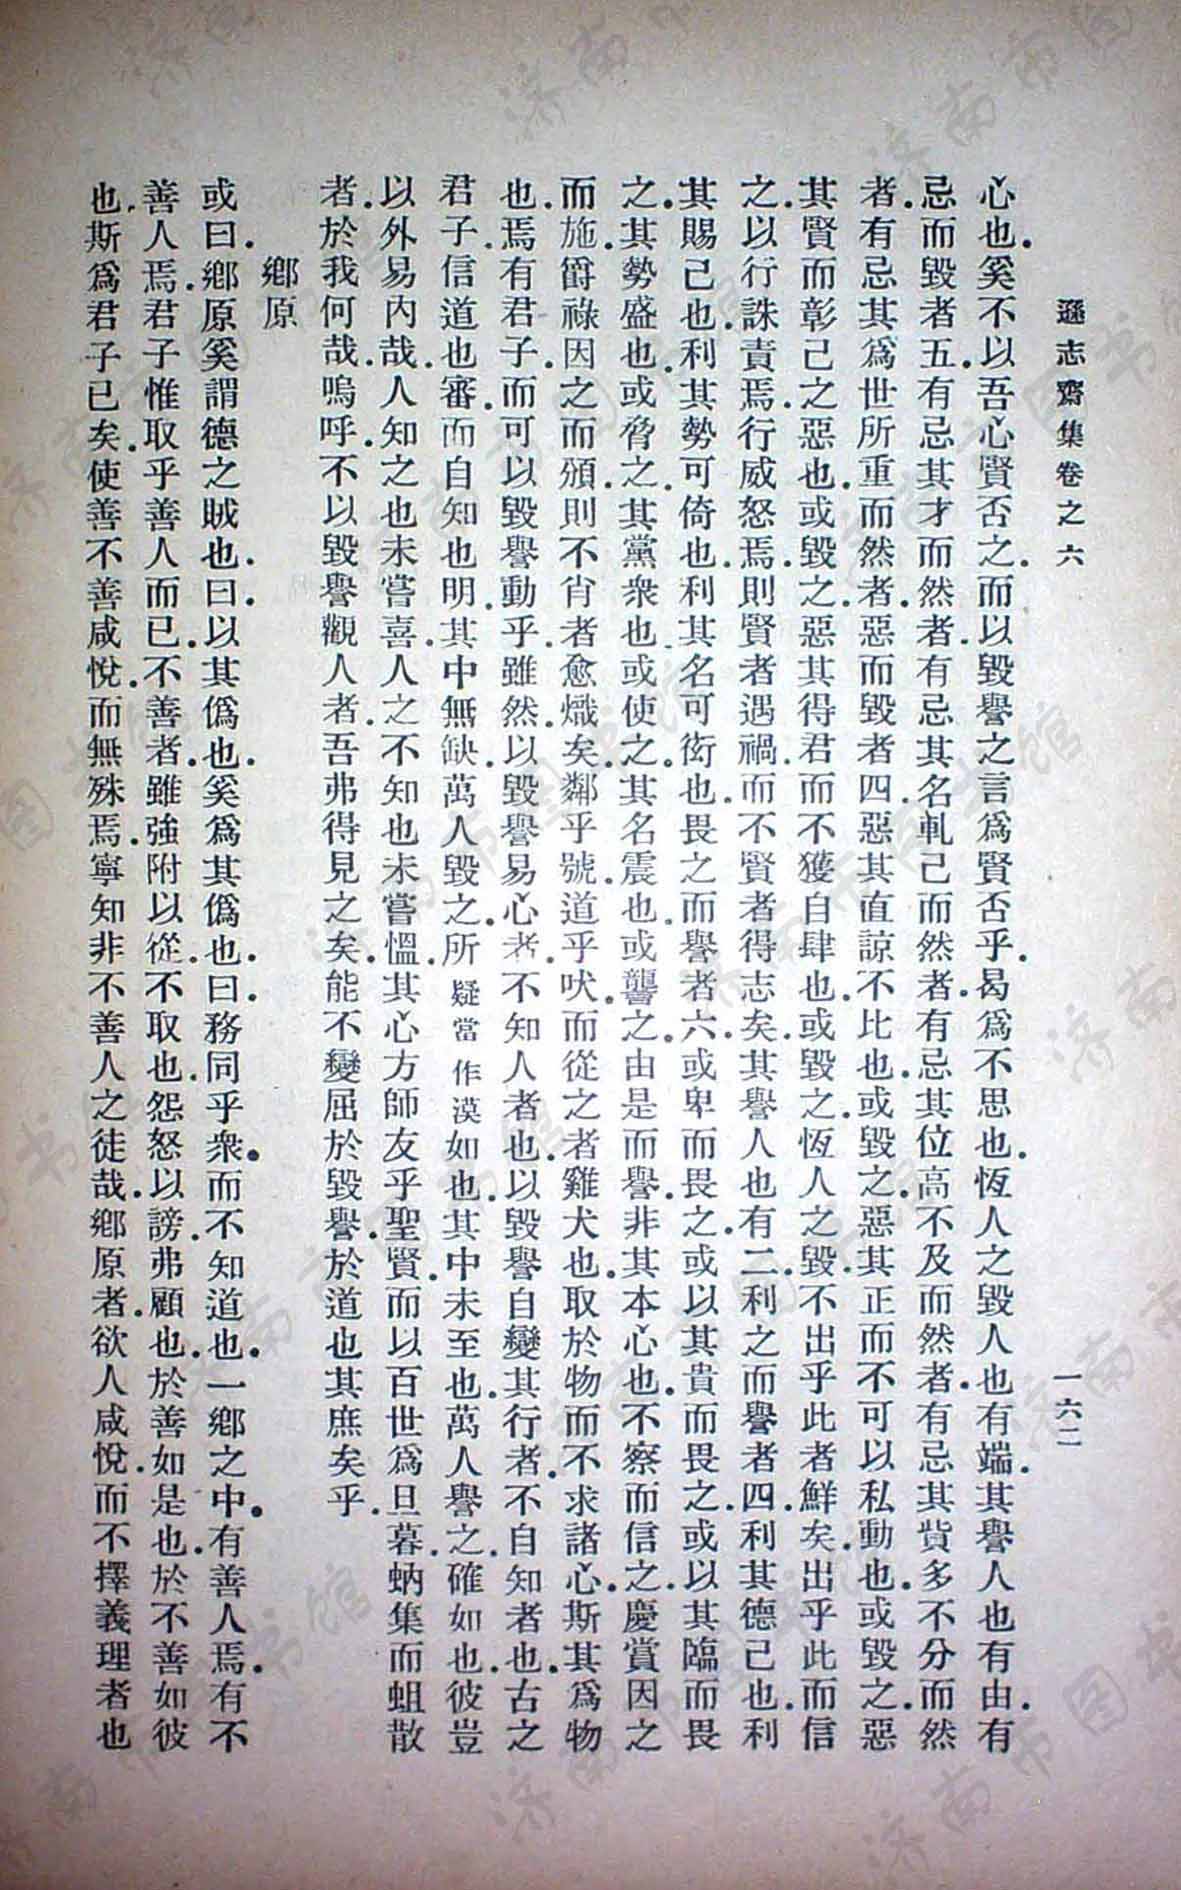 遜志齋集卷之六
一六二
心也。奚不以吾心賢否之。而以毀譽之言爲賢否乎。曷爲不思也。恆人之毀人也有端。其譽人也有由。有
忌而毀者五。有忌其才而然者。有忌其名軋己而然者。有忌其位高不及而然者。有忌其貲多不分而然
者。有忌其爲世所重而然者。惡而毀者四。惡其直諒不比也。或毀之。惡其正而不可以私動也。或毀之。惡
其賢而彰己之惡也。或毀之。惡其得君而不獲自肆也。或毀之。恆人之毀。不出乎此者鮮矣。出乎此而信
之。以行誅責焉。行威怒焉。則賢者遇禍。而不賢者得志矣。其譽人也有二。利之而譽者四。利其德己也。利
其賜己也。利其勢可倚也。利其名可衒也。畏之而譽者六。或卑而畏之。或以其貴而畏之。或以其臨而畏
之。其勢盛也。或脅之。其黨衆也。或使之。其名震也。或讋之。由是而譽。非其本心也。不察而信之。慶賞因之
而施。爵祿因之而頒。則不肖者愈熾矣。鄰乎號。道乎吠。而從之者雞犬也。取於物而不求諸心。斯其爲物
也。焉有君子。而可以毀譽動乎。雖然。以毀譽易心者。不知人者也。以毀譽自變其行者。不自知者也。古之
君子。信道也審。而自知也明。其中無缺。萬人毀之。所疑當作漠如也。其中未至也。萬人譽之。確如也。彼豈
以外易內哉。人知之也未嘗喜。人之不知也未嘗慍。其心方師友乎聖賢。而以百世爲旦暮。蚋集而蛆散
者。於我何哉。嗚呼。不以毀譽觀人者。吾弗得見之矣。能不變屈於毀譽。於道也其庶矣乎。
鄉原
或曰。鄉原奚謂德之賊也。曰。以其僞也。奚爲其僞也。曰。務同乎衆。而不知道也。一鄉之中。有善人焉。有不
善人焉。君子惟取乎善人而已。不善者。雖強附以從。不取也。怨怒以謗。弗顧也。於善如是也。於不善如彼
也。斯爲君子已矣。使善不善咸悅。而無殊焉。寧知非不善人之徒哉。鄉原者。欲人咸悅。而不擇義理者也